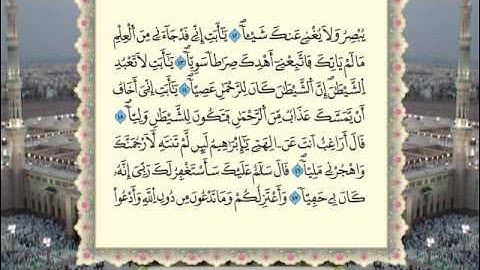 يُبْصِرُ وَلَا يُغْنِي عَنكَ شَيْـًٔا ۝ يَـٰٓأَبَتِ إِنِّي قَدْ جَآءَنِي مِنَ ٱلْعِلْمِ
مَا لَمْ يَاتِكَ فَٱتَّبِعْنِيٓ أَهْدِكَ صِرَٰطًا سَوِيًّا ۝ يَـٰٓأَبَتِ لَا تَعْبُدِ
ٱلشَّيْطَـٰنَ إِنَّ ٱلشَّيْطَـٰنَ كَانَ لِلرَّحْمَـٰنِ عَصِيًّا ۝ يَـٰٓأَبَتِ إِنِّيَ أَخَافُ
أَنْ يَمَسَّكَ عَذَابٌ مِّنَ ٱلرَّحْمَـٰنِ فَتَكُونَ لِلشَّيْطَـٰنِ وَلِيًّا ۝
قَالَ أَرَاغِبٌ اَنتَ عَنَ اٰلِهَتِي يَـٰٓإِبْرَٰهِيمُ لَئِن لَّمْ تَنتَهِ لَأَرْجُمَنَّكَ
وَٱهْجُرْنِي مَلِيًّا ۝ قَالَ سَلَـٰمٌ عَلَيْكَ سَأَسْتَغْفِرُ لَكَ رَبِّيَ إِنَّهُۥ
كَانَ بِي حَفِيًّا ۝ وَأَعْتَزِلُكُمْ وَمَا تَدْعُونَ مِن دُونِ ٱللَّهِ وَأَدْعُواْ